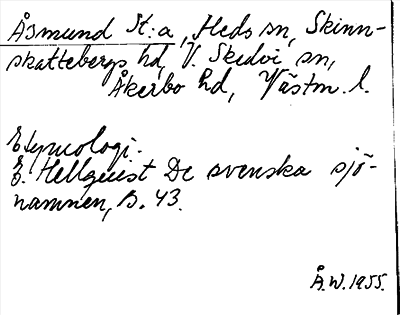 Åsmund St:a, Heds sn, Skinn-
skattebergs hd, V. Skedvi sn,
Åkerbo hd, Västm. l.
Etymologi.
E. Hellquist De svenska sjö-
namnen, B. 43.
Å.W. 1955.